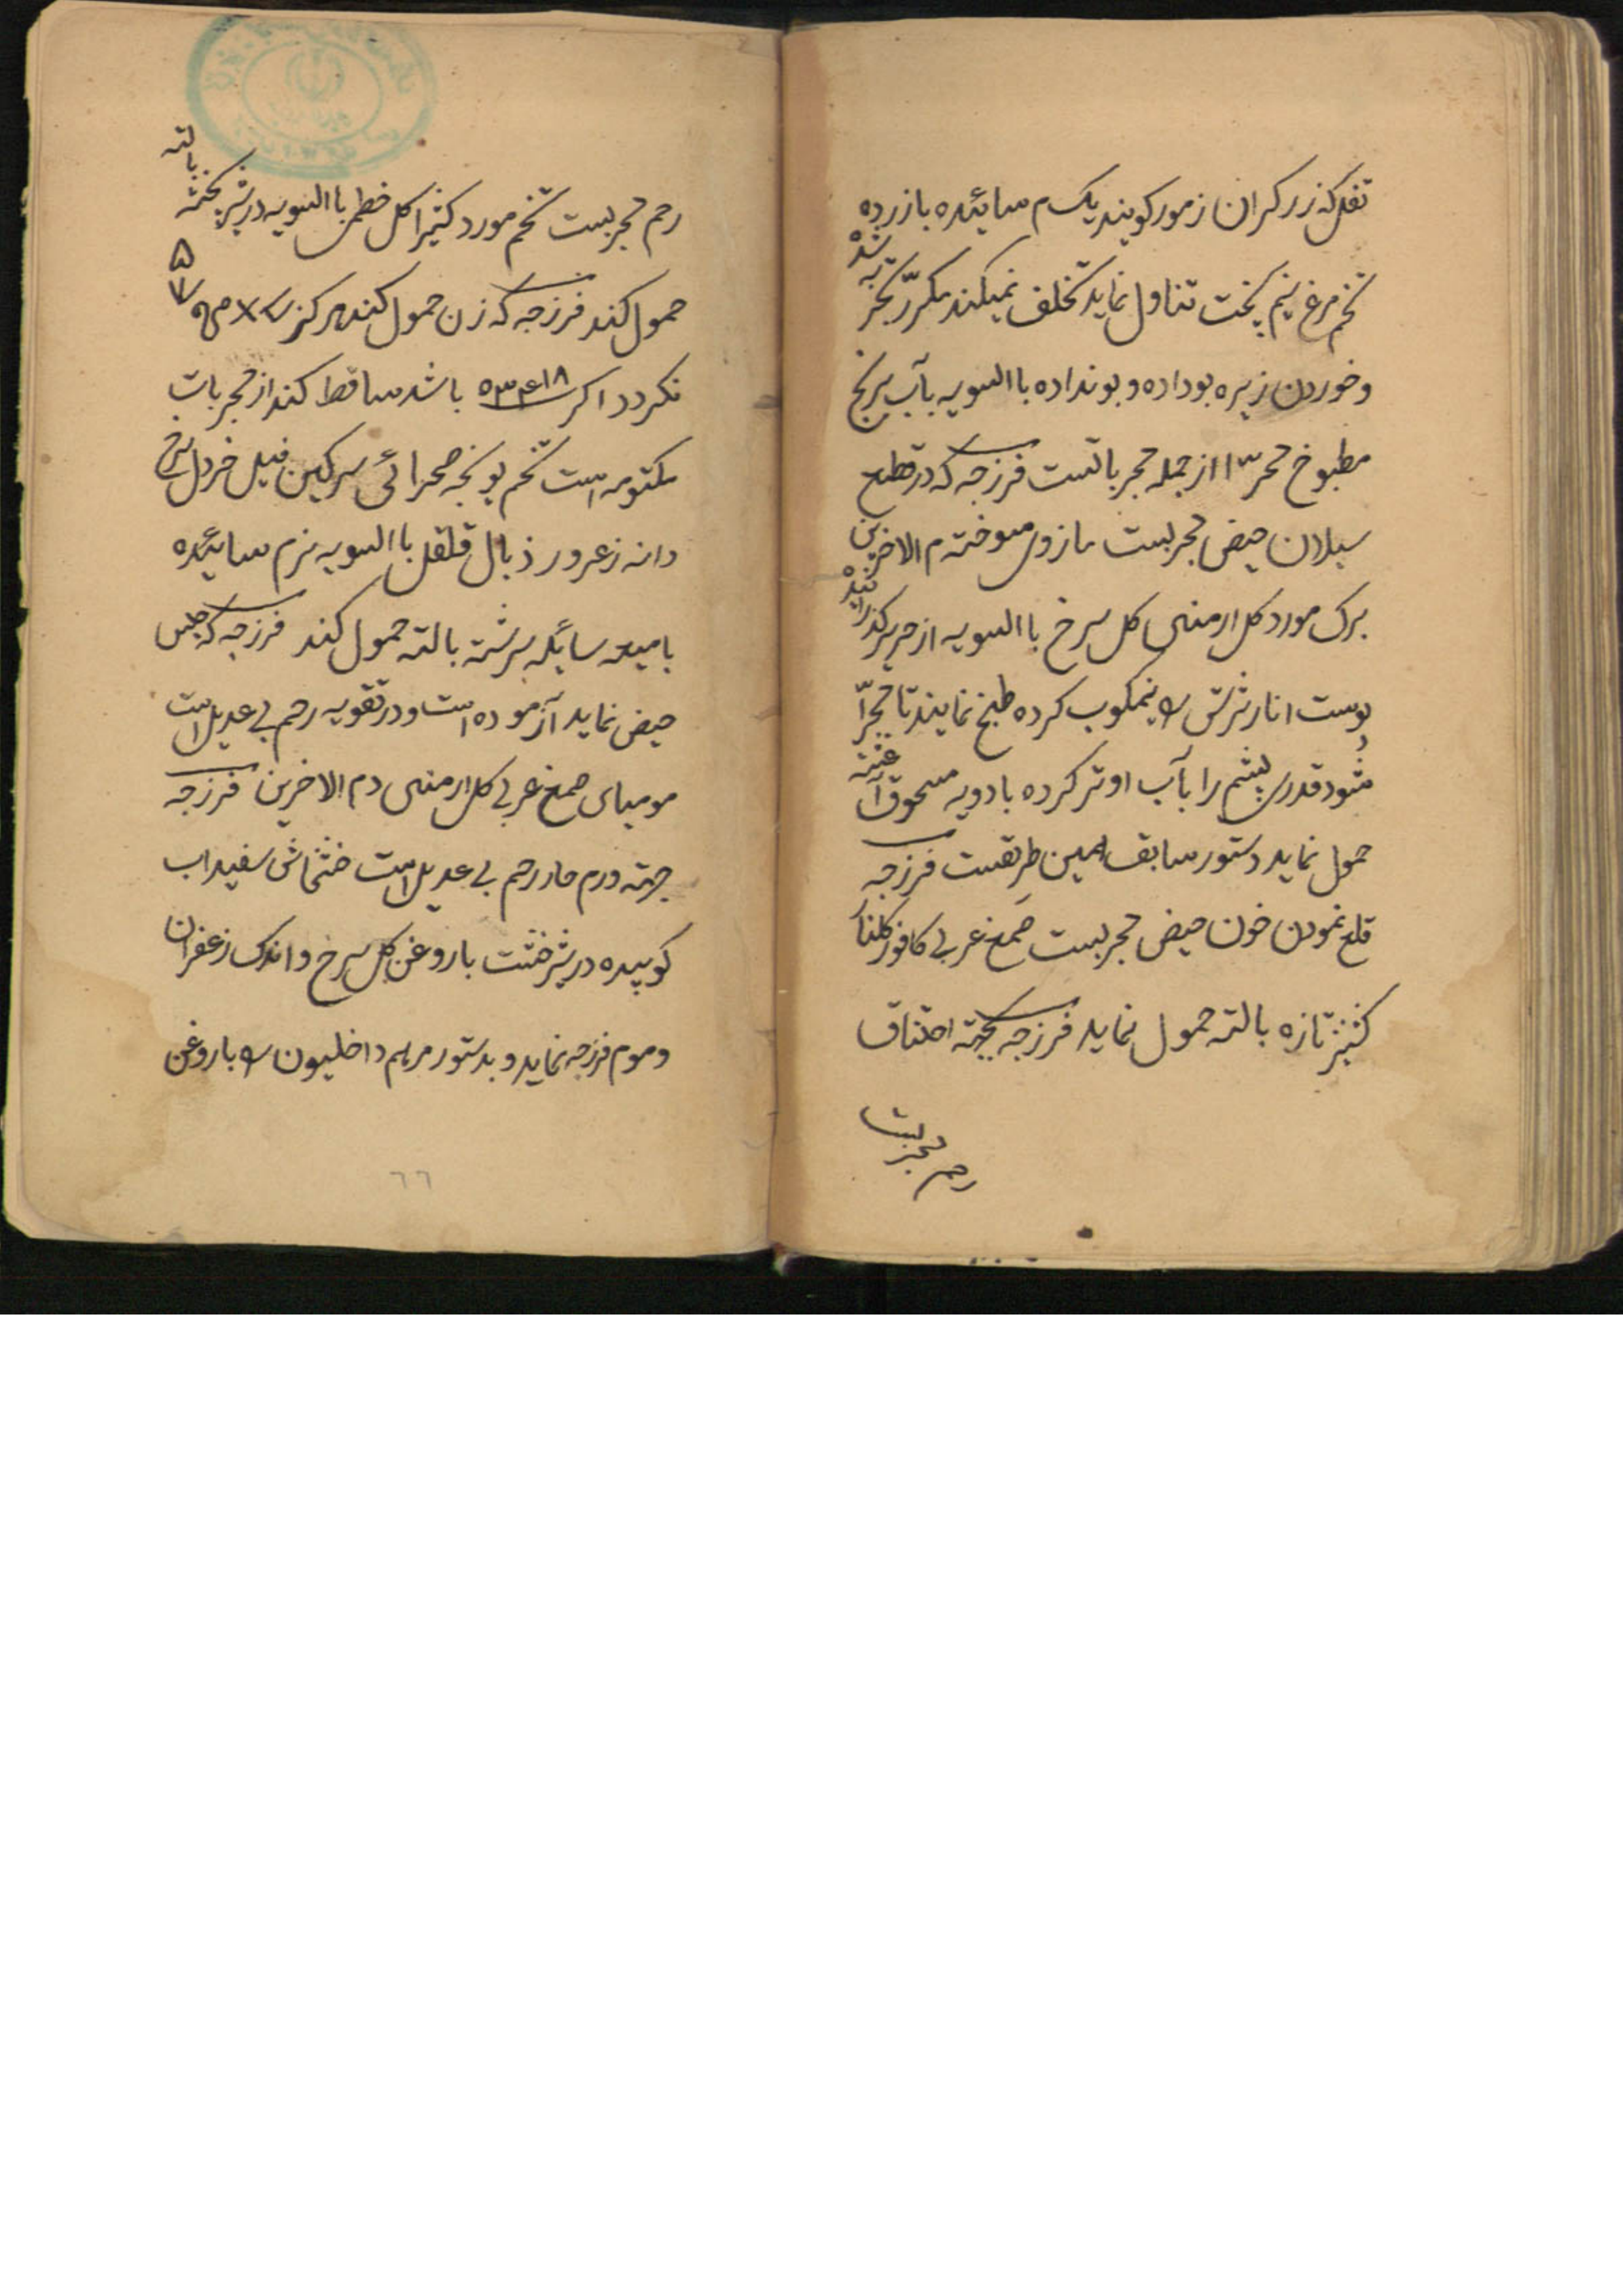 تفل که زرکران زمور کویند یک م سائیده بازرده
تخم مرغ نیم پخت تناول نماید تخلف نمیکند مکرّر بتجربه شده
و خوردن زیره بوداده و بونداده باالسویه بآب برنج
مطبوخ از جمله مجرباتست فرزجه که در قطع
سیلان حیض مجربست مازوی سوخته دم الاخوین
برک مورد کل ارمنی کل سرخ باالسویه از حریر کذرانیده
پوست انار ترش نیمکوب کرده طبخ نمایند تا مهرّا
شود قدری پشم را بآب او تر کرده بادویه مسحوق آغشته
حمول نماید دستور سابق همین طریقست فرزجه
قلع نمودن خون حیض مجربست صمغ عربی کافور کلنار
کشنیز تازه بالته حمول نماید فرزجه بجهة اختناق
رحم مجربست
رحم مجربست تخم مورد کثیرا کل خطمی باالسویه در شیر پخته بالته
حمول کند فرزجه که زن حمول کند هرکز
نکردد اکر باشد ساقط کند از مجربات
مکتومه است تخم یونجه صحرائی سرکین فیل خردل سرخ
دانه زعرور ذبال قلقل باالسویه نرم سائیده
بامیعه سائله سرشته بالته حمول کند فرزجه که حبس
حیض نماید آزموده است و در تقویه رحم بی عدیل است
مومیای صمغ عربی کل ارمنی دم الاخوین فرزجه
جهة ورم حار رحم بی عدیل است خشخاش سفید اب
کوبیده در شیر خشت باروغن کل سرخ و اندک زعفران
و موم فرزجه نماید و بدستور مرهم داخلیون باروغن
٦٦